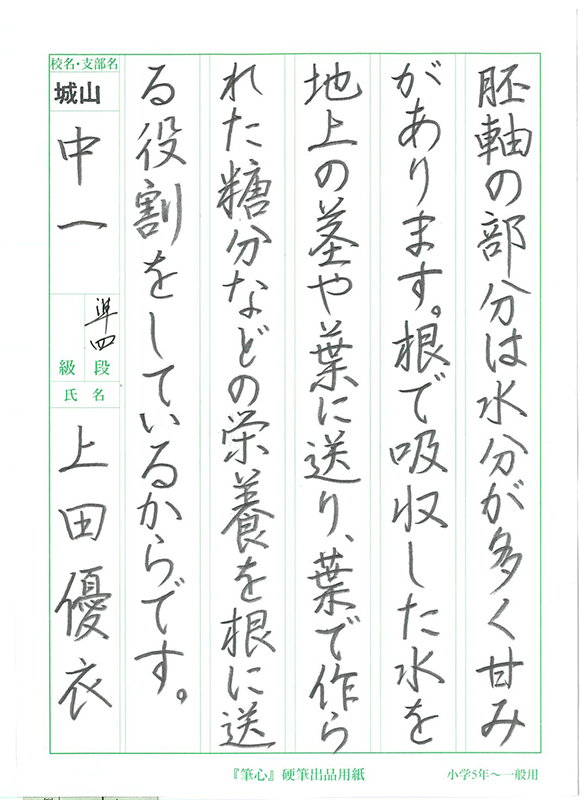 胚軸の部分は水分が多く甘み
があります。根で吸収した水を
地上の茎や葉に送り、葉で作ら
れた糖分などの栄養を根に送
る役割をしているからです。
校名・支部名
城山
中一
準四
段
級
氏名
上田優衣
『筆心』硬筆出品用紙
小学5年～一般用